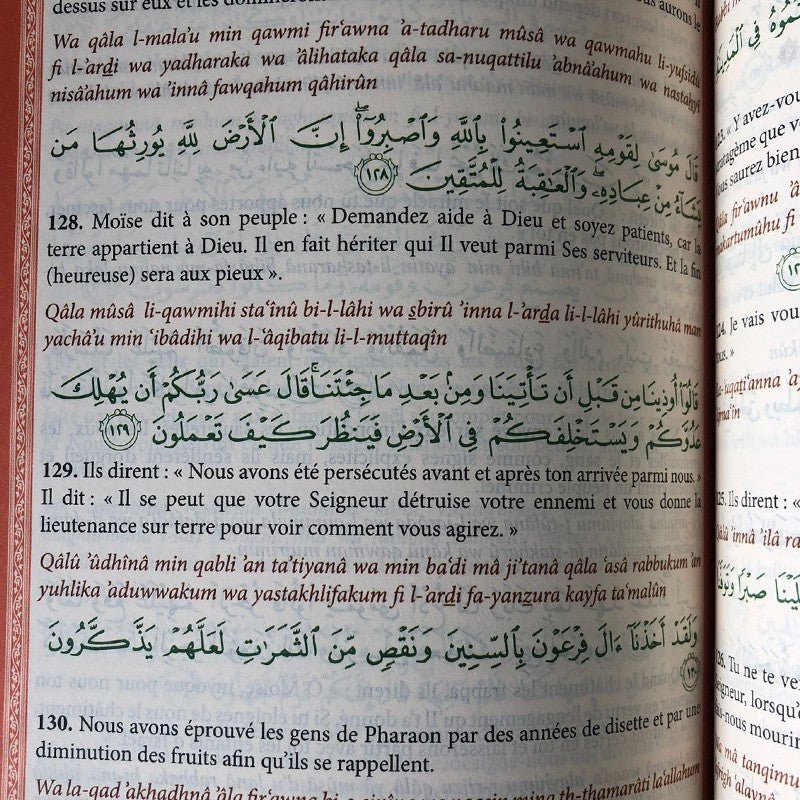 dessus sur eux et les
Wa qâla l-mala'u min qawmi fir'awna 'a-tadharu mûsâ wa qawmahu li-yufsidû
fi l-'arḏi wa yadharaka wa 'âlihataka qâla sa-nuqattilu 'abnâ'ahum wa nastaḥyî
nisâ'ahum wa 'innâ fawqahum qâhirûn
قَالَ مُوسَىٰ لِقَوْمِهِ ٱسْتَعِينُوا۟ بِٱللَّهِ وَٱصْبِرُوٓا۟ ۖ إِنَّ ٱلْأَرْضَ لِلَّهِ يُورِثُهَا مَن
يَشَآءُ مِنْ عِبَادِهِۦ ۖ وَٱلْعَـٰقِبَةُ لِلْمُتَّقِينَ ١٢٨
128. Moïse dit à son peuple : « Demandez aide à Dieu et soyez patients, car la
terre appartient à Dieu. Il en fait hériter qui Il veut parmi Ses serviteurs. Et la fin
(heureuse) sera aux pieux ».
Qâla mûsâ li-qawmihi sta'înû bi-l-lâhi wa sbirû 'inna l-'arḏa li-l-lâhi yûrithuhâ man
yachâ'u min 'ibâdihi wa l-'âqibatu li-l-muttaqîn
قَالُوٓا۟ أُوذِينَا مِن قَبْلِ أَن تَأْتِيَنَا وَمِنۢ بَعْدِ مَا جِئْتَنَا ۚ قَالَ عَسَىٰ رَبُّكُمْ أَن يُهْلِكَ
عَدُوَّكُمْ وَيَسْتَخْلِفَكُمْ فِى ٱلْأَرْضِ فَيَنظُرَ كَيْفَ تَعْمَلُونَ ١٢٩
129. Ils dirent : « Nous avons été persécutés avant et après ton arrivée parmi nous. »
Il dit : « Il se peut que votre Seigneur détruise votre ennemi et vous donne la
lieutenance sur terre pour voir comment vous agirez. »
Qâlû 'ûdhînâ min qabli 'an ta'tiyanâ wa min ba'di mâ ji'tanâ qâla 'asâ rabbukum 'an
yuhlika 'aduwwakum wa yastakhlifakum fi l-'arḏi fa-yanẕura kayfa ta'malûn
وَلَقَدْ أَخَذْنَآ ءَالَ فِرْعَوْنَ بِٱلسِّنِينَ وَنَقْصٍ مِّنَ ٱلثَّمَرَٰتِ لَعَلَّهُمْ يَذَّكَّرُونَ
١٣٠
130. Nous avons éprouvé les gens de Pharaon par des années de disette et par une
diminution des fruits afin qu'ils se rappellent.
Wa la-qad 'akhadhnâ 'âla fir'awna bi-s-sinîna wa naqsin mina th-thamarâti la'allahum
« Y avez-vou
ratagème que v
ous saurez bien
Qâla fir'awnu
makartumûhu fi
Je vais vou
nous. »
Ils dirent : «
Qâlû 'innâ 'ilâ ra
126. Tu ne te ve
Seigneur, lorsqu'
mourir
mâ tanqimu